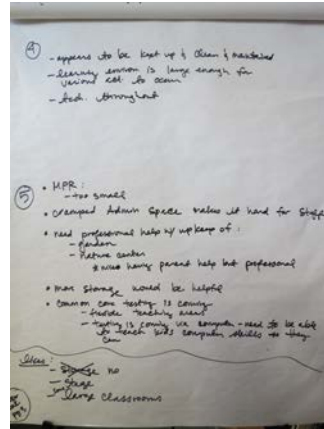 ④
- appears to be kept up & clean & maintained
- learning environ is large enough for
various act to occur
- tech. throughout
⑤
• MPR:
- too small
• cramped Admin Space makes it hard for Staff
• need professional help w/ upkeep of:
- garden
- nature center
* nice having parent help but professional
• more storage would be helpful
• Common core testing is coming
- flexible teaching areas
- testing is coming via computer - need to be able
to teach kids computer skills so they
can
Likes:
- no
- Stage
- large classrooms